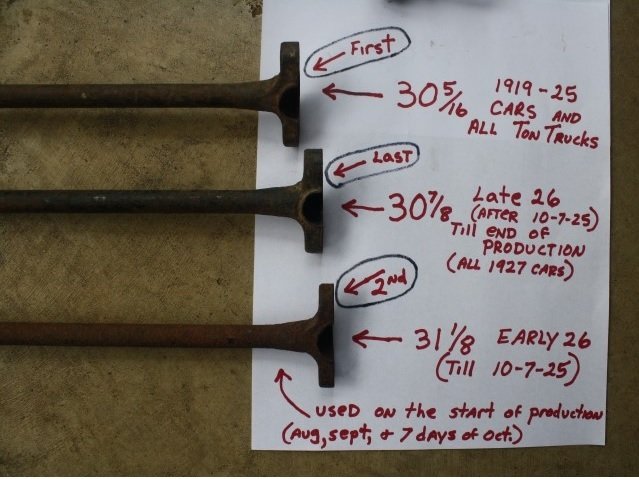 First
30 5/16 1919-25
CARS AND
ALL TON TRUCKS
LAST
30 7/8 Late 26
(AFTER 10-7-25)
Till END OF
PRODUCTION
(ALL 1927 CARS)
2nd
31 1/8 EARLY 26
(Till 10-7-25)
USED ON the START OF PRODUCTION
(Aug, Sept, & 7 days of Oct.)